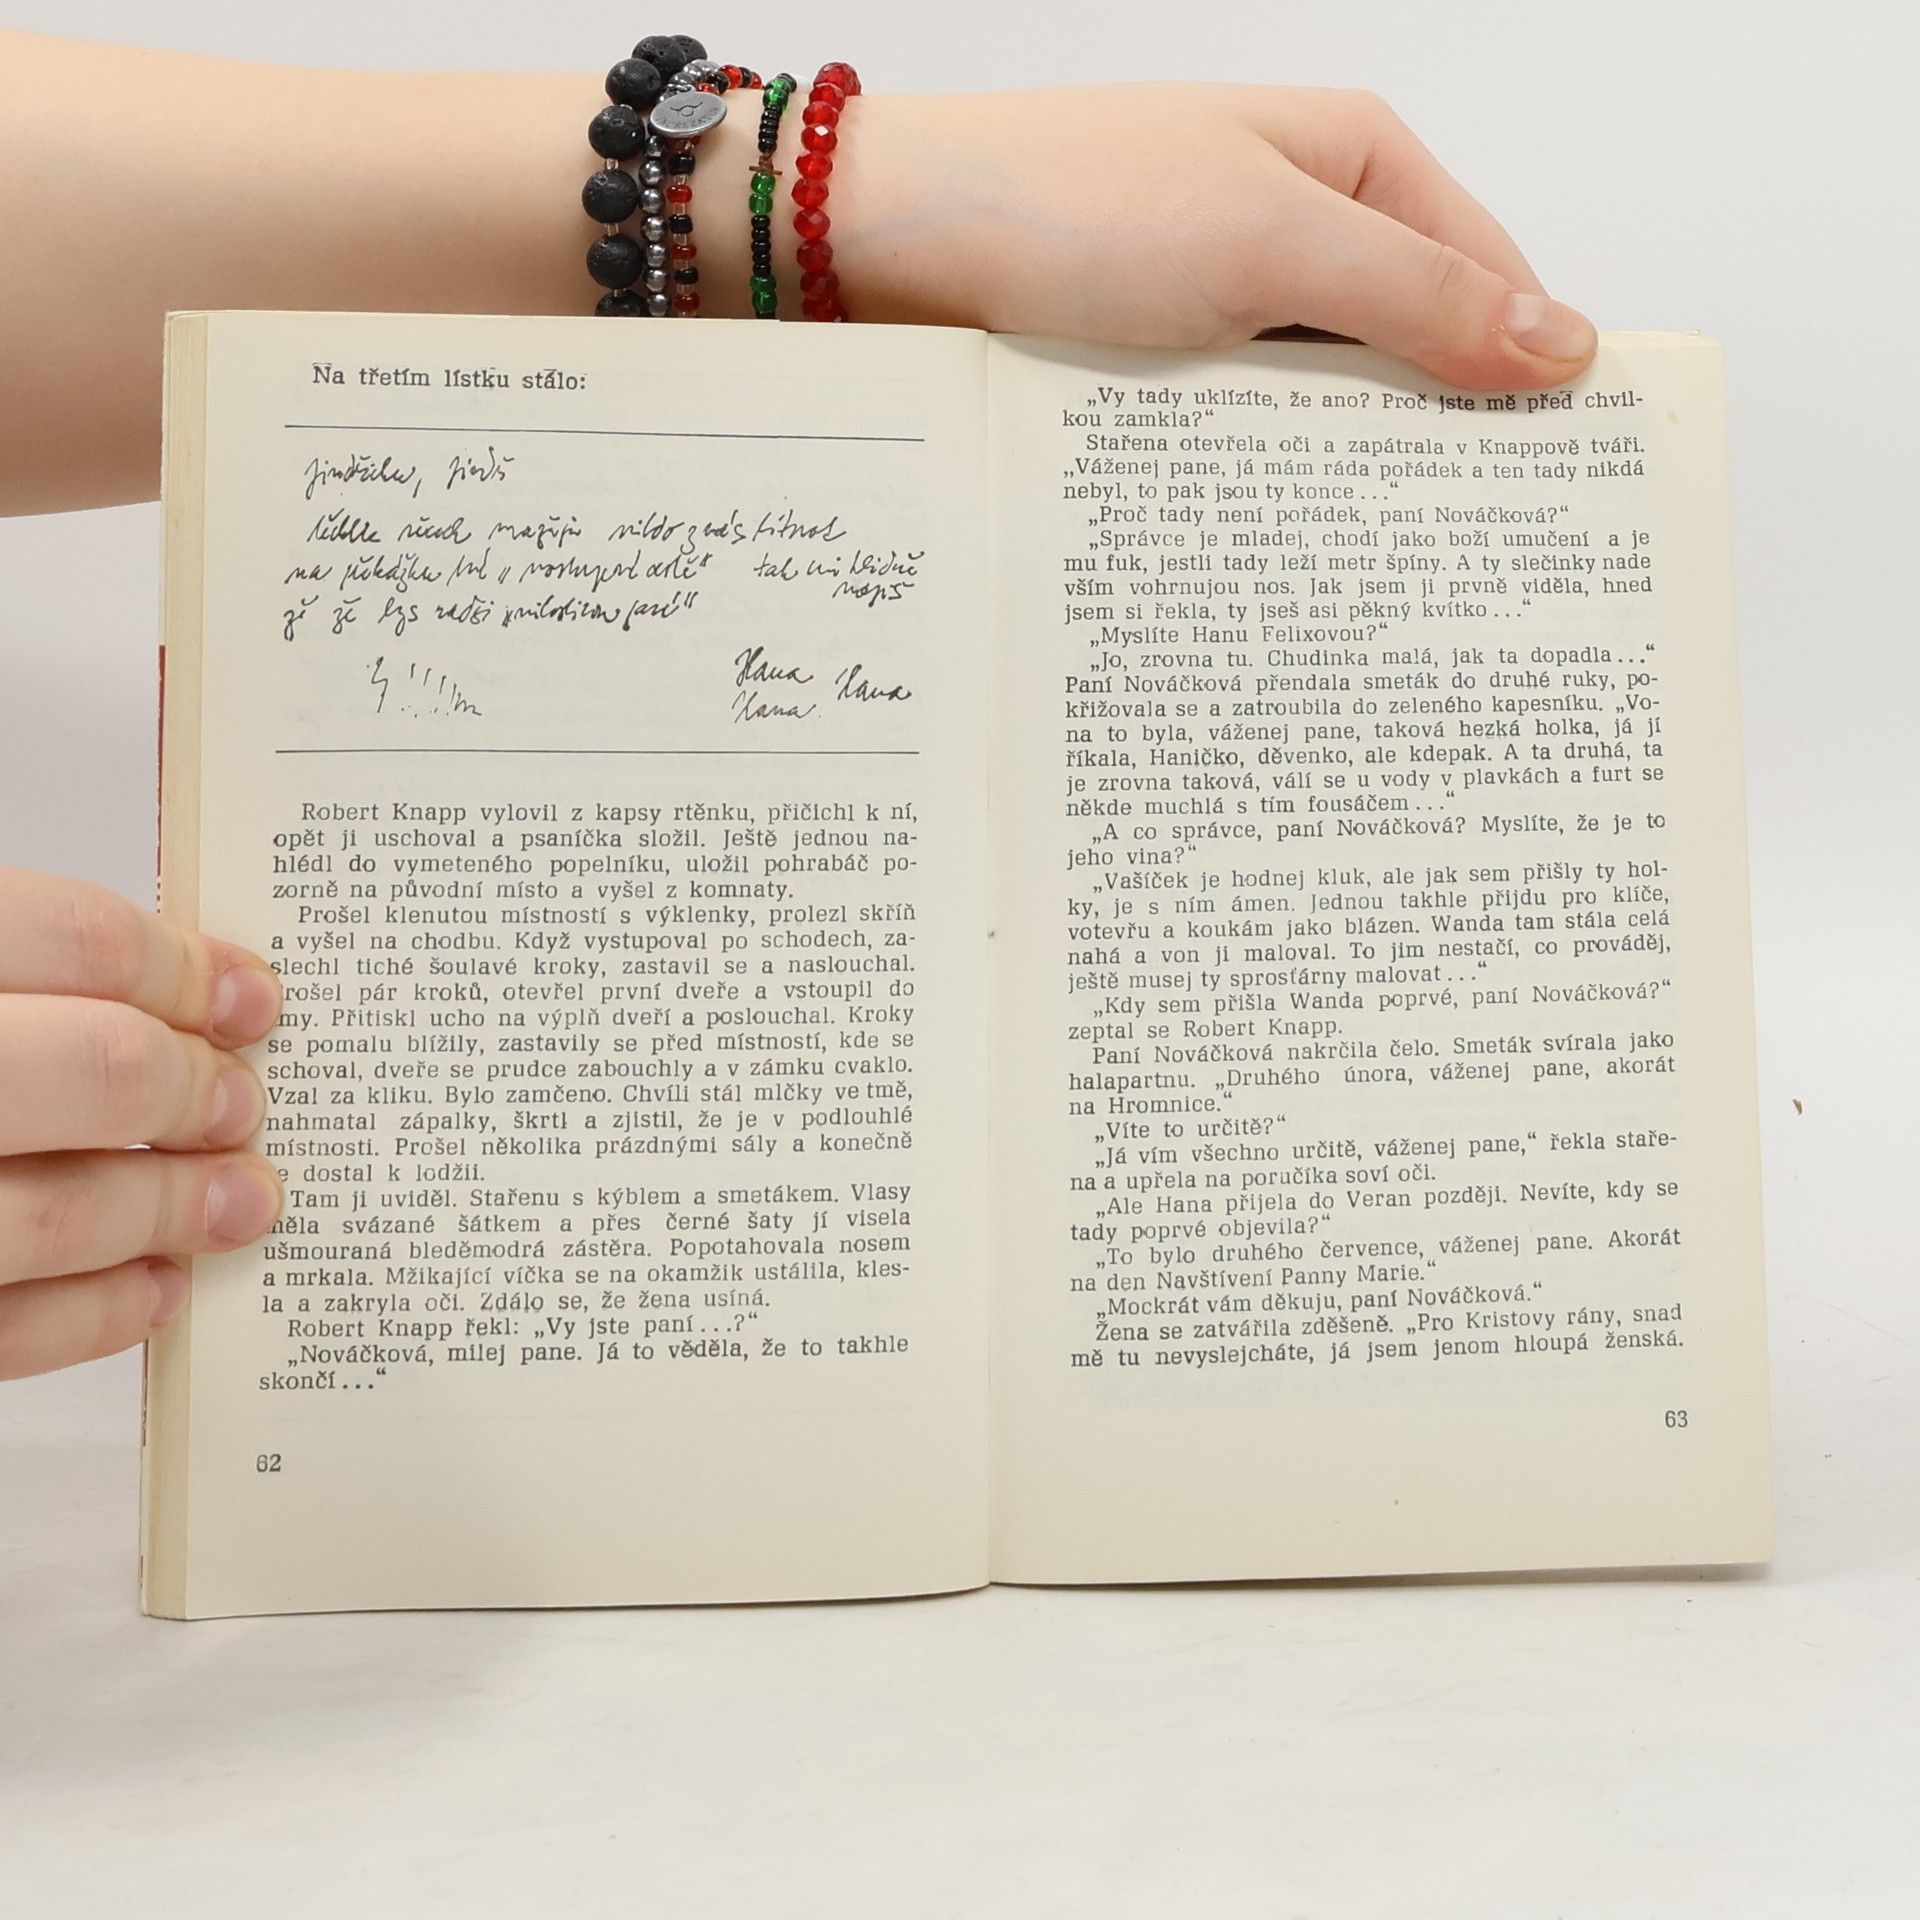 Na třetím lístku stálo:
na
Hana
Hana
Hana
Robert Knapp vylovil z kapsy rtěnku, přičichl k ní,
opět ji uschoval a psaníčka složil. Ještě jednou na-
hlédl do vymeteného popelníku, uložil pohrabáč po-
zorně na původní místo a vyšel z komnaty.
Prošel klenutou místností s výklenky, prolezl skříň
a vyšel na chodbu. Když vystupoval po schodech, za-
slechl tiché šoulavé kroky, zastavil se a naslouchal.
rošel pár kroků, otevřel první dveře a vstoupil do
my. Přitiskl ucho na výplň dveří a poslouchal. Kroky
se pomalu blížily, zastavily se před místností, kde se
schoval, dveře se prudce zabouchly a v zámku cvaklo.
Vzal za kliku. Bylo zamčeno. Chvíli stál mlčky ve tmě,
nahmatal zápalky, škrtl a zjistil, že je v podlouhlé
místnosti. Prošel několika prázdnými sály a konečně
e dostal k lodžii.
Tam ji uviděl. Stařenu s kýblem a smetákem. Vlasy
měla svázané šátkem a přes černé šaty jí visela
ušmouraná bleděmodrá zástěra. Popotahovala nosem
a mrkala. Mžikající víčka se na okamžik ustálila, kles-
la a zakryla oči. Zdálo se, že žena usíná.
Robert Knapp řekl: „Vy jste paní...?“
„Nováčková, milej pane. Já to věděla, že to takhle
skončí...“
62
„Vy tady uklízíte, že ano? Proč jste mě před chvil-
kou zamkla?“
Stařena otevřela oči a zapátrala v Knappově tváři.
„Váženej pane, já mám ráda pořádek a ten tady nikdá
nebyl, to pak jsou ty konce...“
„Proč tady není pořádek, paní Nováčková?“
„Správce je mladej, chodí jako boží umučení a je
mu fuk, jestli tady leží metr špíny. A ty slečinky nade
vším vohrnujou nos. Jak jsem ji prvně viděla, hned
jsem si řekla, ty jseš asi pěkný kvítko...“
„Myslíte Hanu Felixovou?“
„Jo, zrovna tu. Chudinka malá, jak ta dopadla...“
Paní Nováčková přendala smeták do druhé ruky, po-
křižovala se a zatroubila do zeleného kapesníku. „Vo-
na to byla, váženej pane, taková hezká holka, já jí
říkala, Haničko, děvenko, ale kdepak. A ta druhá, ta
je zrovna taková, válí se u vody v plavkách a furt se
někde muchlá s tím fousáčem...“
„A co správce, paní Nováčková? Myslíte, že je to
jeho vina?“
„Vašíček je hodnej kluk, ale jak sem přišly ty hol-
ky, je s ním ámen. Jednou takhle přijdu pro klíče,
votevřu a koukám jako blázen. Wanda tam stála celá
nahá a von ji maloval. To jim nestačí, co prováděj,
ještě musej ty sprosťárny malovat...“
„Kdy sem přišla Wanda poprvé, paní Nováčková?“
zeptal se Robert Knapp.
Paní Nováčková nakrčila čelo. Smeták svírala jako
halapartnu. „Druhého února, váženej pane, akorát
na Hromnice.“
„Víte to určitě?“
„Já vím všechno určitě, váženej pane,“ řekla staře-
na a upřela na poručíka soví oči.
„Ale Hana přijela do Veran později. Nevíte, kdy se
tady poprvé objevila?“
„To bylo druhého července, váženej pane. Akorát
na den Navštívení Panny Marie.“
„Mockrát vám děkuju, paní Nováčková.“
Žena se zatvářila zděšeně. „Pro Kristovy rány, snad
mě tu nevyslejcháte, já jsem jenom hloupá ženská.
63